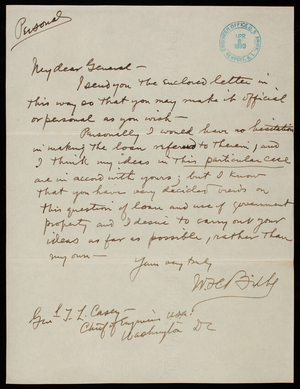 Personal
My dear General—
I send you the enclosed letter in
this way so that you may make it official
or personal as you wish—
Personally I would have no hesitation
in making the loan referred to therein; and
I think my ideas in this particular case
are in accord with yours; but I know
that you have very decided views on
this question of loan and use of government
property and I desire to carry out your
ideas as far as possible, rather than
my own—
Yours very truly
W. H. Bixby
Gen'l T. L. Casey—
Chief of Engineers USA.
Washington DC